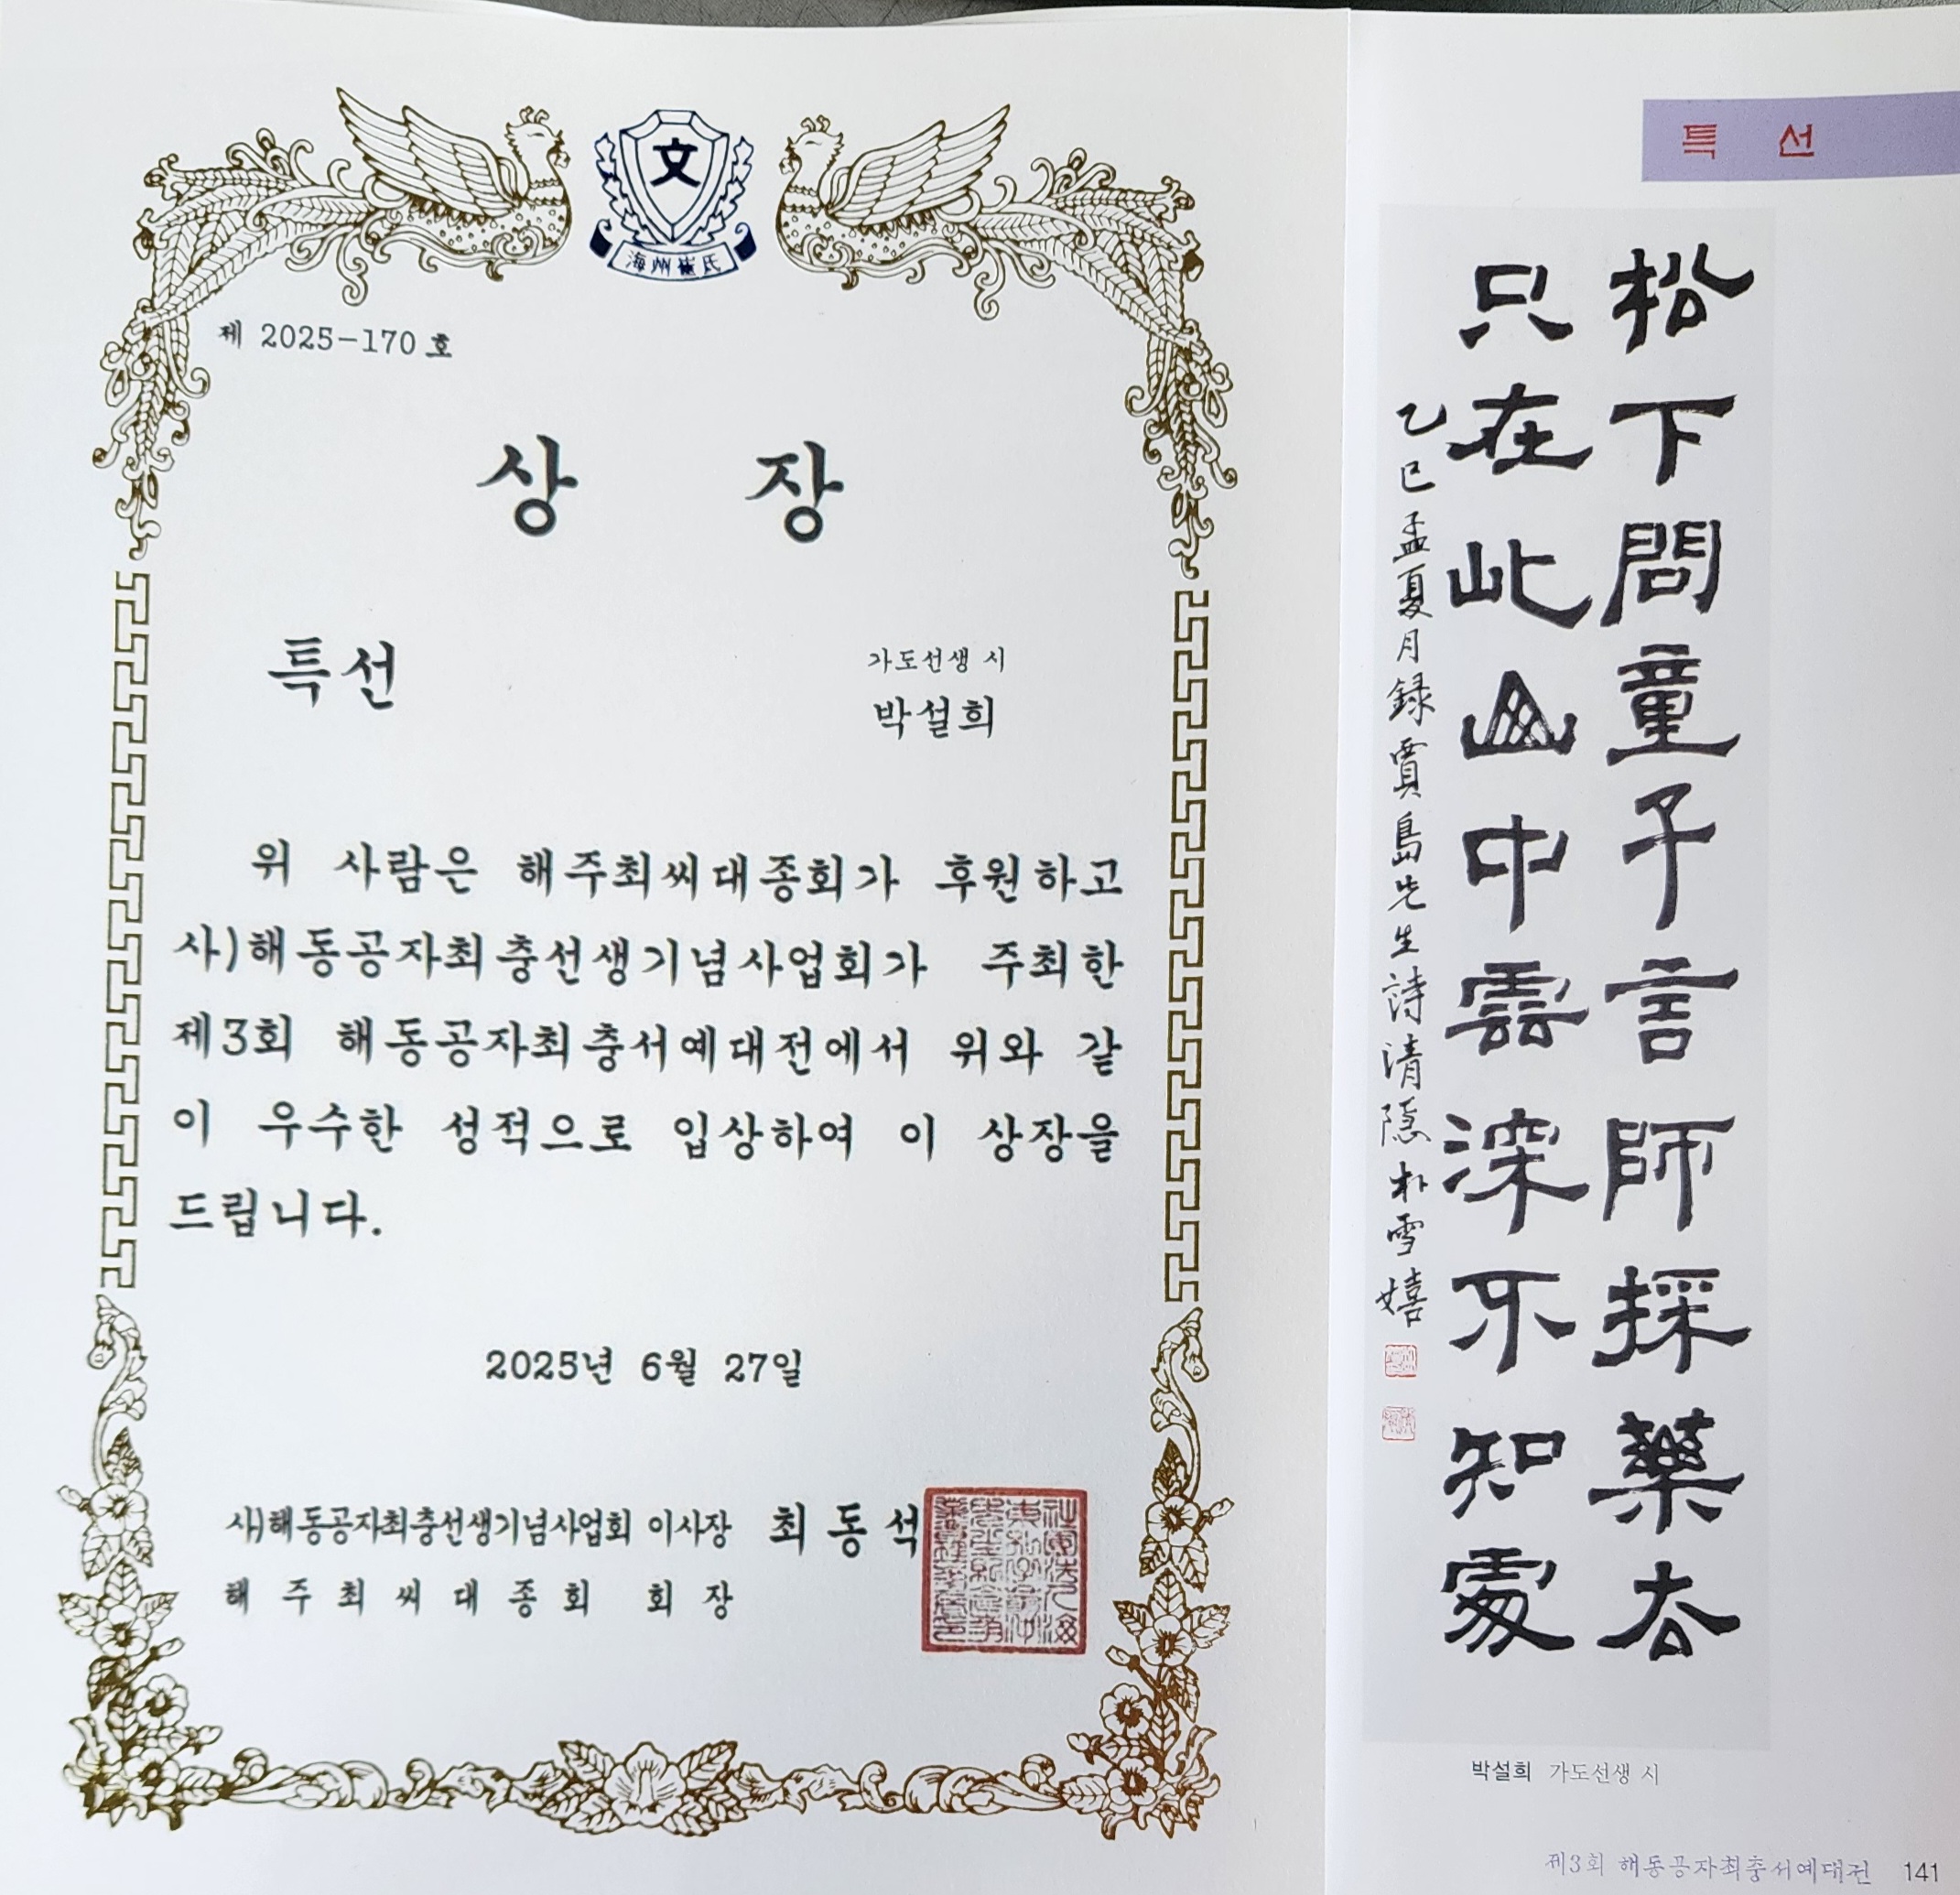 文
海州崔氏
제 2025-170 호
상 장
특선
가도선생 시
박설희
위 사람은 해주최씨대종회가 후원하고
사)해동공자최충선생기념사업회가 주최한
제3회 해동공자최충서예대전에서 위와 같
이 우수한 성적으로 입상하여 이 상장을
드립니다.
2025년 6월 27일
사)해동공자최충선생기념사업회 이사장 최 동 석
해 주 최 씨 대 종 회 회 장
특 선
松下問童子言師採藥去
只在此山中雲深不知處
乙巳孟夏月録賈島先生詩清隐朴雪嬉
박설희 가도선생 시
제3회 해동공자최충서예대전 141